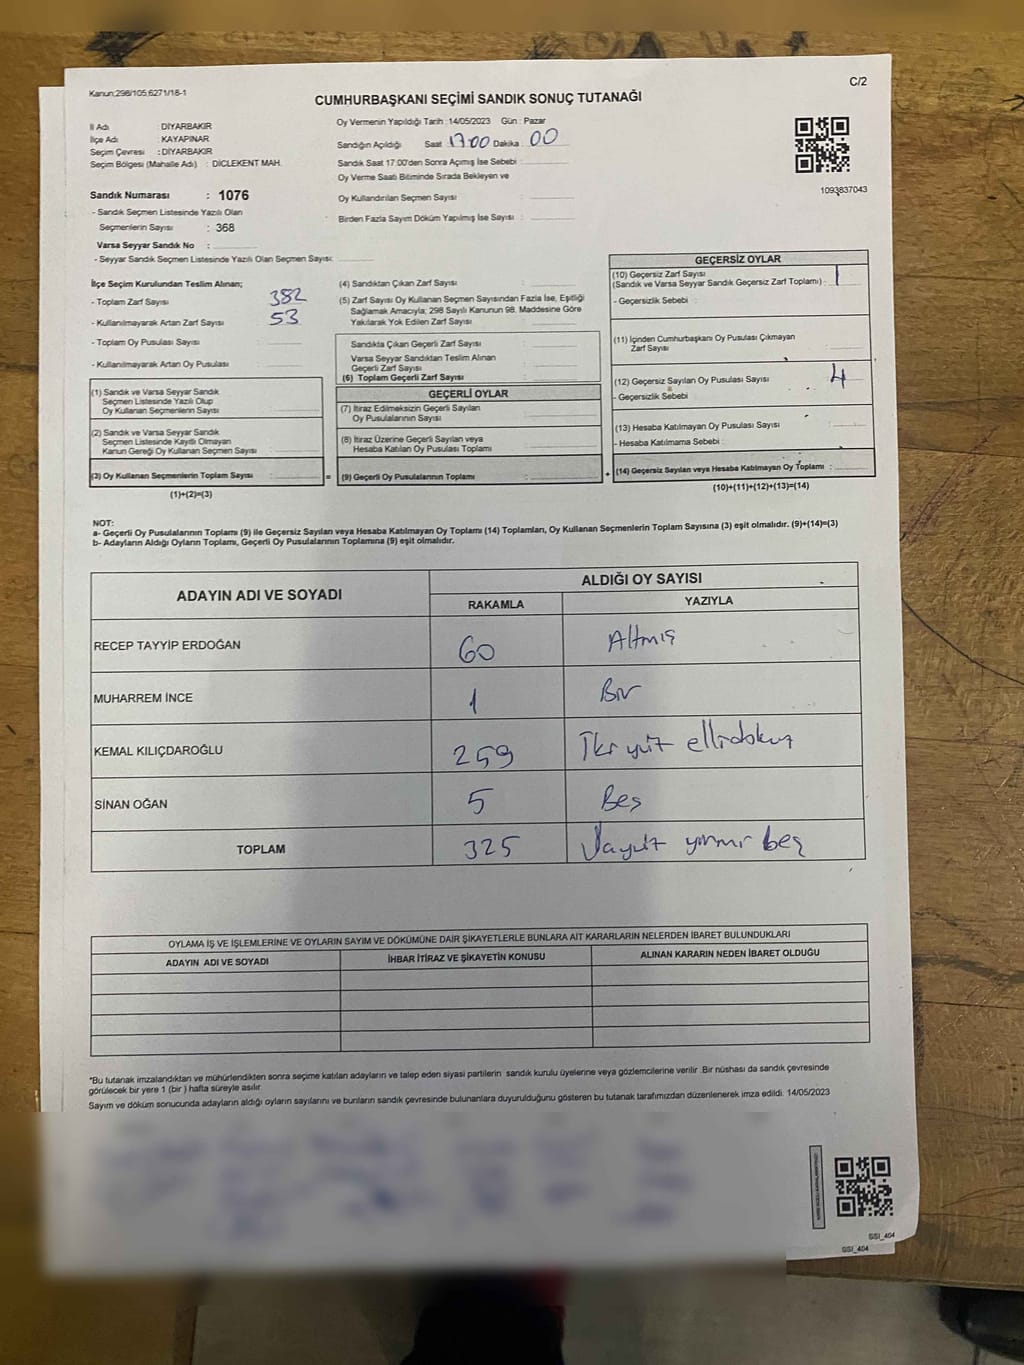 Kanun;298/105,6271/18-1
C/2
CUMHURBAŞKANI SEÇİMİ SANDIK SONUÇ TUTANAĞI
İl Adı : DİYARBAKIR
İlçe Adı : KAYAPINAR
Seçim Çevresi : DİYARBAKIR
Seçim Bölgesi (Mahalle Adı) : DİCLEKENT MAH.
Sandık Numarası : 1076
- Sandık Seçmen Listesinde Yazılı Olan
Seçmenlerin Sayısı : 368
Varsa Seyyar Sandık No :
- Seyyar Sandık Seçmen Listesinde Yazılı Olan Seçmen Sayısı:
Oy Vermenin Yapıldığı Tarih : 14/05/2023 Gün : Pazar
Sandığın Açıldığı Saat 17:00 Dakika : 00
Sandık Saat 17:00'den Sonra Açımış İse Sebebi :
Oy Verme Saati Bitiminde Sırada Bekleyen ve
Oy Kullandırılan Seçmen Sayısı :
Birden Fazla Sayım Döküm Yapılmış İse Sayısı :
1093837043
İlçe Seçim Kurulundan Teslim Alınan;
- Toplam Zarf Sayısı 382
- Kullanılmayarak Artan Zarf Sayısı : 53
- Toplam Oy Pusulası Sayısı :
- Kullanılmayarak Artan Oy Pusulası :
(1) Sandık ve Varsa Seyyar Sandık
Seçmen Listesinde Yazılı Olup
Oy Kullanan Seçmenlerin Sayısı :
(2) Sandık ve Varsa Seyyar Sandık
Seçmen Listesinde Kayıtlı Olmayan
Kanun Gereği Oy Kullanan Seçmen Sayısı :
(3) Oy Kullanan Seçmenlerin Toplam Sayısı :
(1)+(2)=(3)
(4) Sandıktan Çıkan Zarf Sayısı :
(5) Zarf Sayısı Oy Kullanan Seçmen Sayısından Fazla İse, Eşitliği
Sağlamak Amacıyla; 298 Sayılı Kanunun 98. Maddesine Göre
Yakılarak Yok Edilen Zarf Sayısı :
Sandıkta Çıkan Geçerli Zarf Sayısı :
Varsa Seyyar Sandıktan Teslim Alınan
Geçerli Zarf Sayısı :
(6) Toplam Geçerli Zarf Sayısı :
=
GEÇERLİ OYLAR
(7) İtiraz Edilmeksizin Geçerli Sayılan
Oy Pusulalarının Sayısı :
(8) İtiraz Üzerine Geçerli Sayılan veya
Hesaba Katılan Oy Pusulası Toplamı :
(9) Geçerli Oy Pusulalarının Toplamı :
+
GEÇERSİZ OYLAR
(10) Geçersiz Zarf Sayısı
(Sandık ve Varsa Seyyar Sandık Geçersiz Zarf Toplamı) : 1
- Geçersizlik Sebebi :
(11) İçinden Cumhurbaşkanı Oy Pusulası Çıkmayan
Zarf Sayısı :
(12) Geçersiz Sayılan Oy Pusulası Sayısı 4
- Geçersizlik Sebebi
(13) Hesaba Katılmayan Oy Pusulası Sayısı :
- Hesaba Katılmama Sebebi :
(14) Geçersiz Sayılan veya Hesaba Katılmayan Oy Toplamı :
(10)+(11)+(12)+(13)=(14)
NOT:
a- Geçerli Oy Pusulalarının Toplamı (9) ile Geçersiz Sayılan veya Hesaba Katılmayan Oy Toplamı (14) Toplamları, Oy Kullanan Seçmenlerin Toplam Sayısına (3) eşit olmalıdır. (9)+(14)=(3)
b- Adayların Aldığı Oyların Toplamı, Geçerli Oy Pusulalarının Toplamına (9) eşit olmalıdır.
ADAYIN ADI VE SOYADI
ALDIĞI OY SAYISI
RAKAMLA YAZIYLA
RECEP TAYYİP ERDOĞAN 60 Altmış
MUHARREM İNCE 1 Bir
KEMAL KILIÇDAROĞLU 259 İki yüz ellidokuz
SİNAN OĞAN 5 Beş
TOPLAM 325 yirmi beş
OYLAMA İŞ VE İŞLEMLERİNE VE OYLARIN SAYIM VE DÖKÜMÜNE DAİR ŞİKAYETLERLE BUNLARA AİT KARARLARIN NELERDEN İBARET BULUNDUKLARI
ADAYIN ADI VE SOYADI İHBAR İTİRAZ VE ŞİKAYETİN KONUSU ALINAN KARARIN NEDEN İBARET OLDUĞU
*Bu tutanak imzalandıktan ve mühürlendikten sonra seçime katılan adayların ve talep eden siyasi partilerin sandık kurulu üyelerine veya gözlemcilerine verilir. Bir nüshası da sandık çevresinde
görülecek bir yere 1 (bir ) hafta süreyle asılır.
Sayım ve döküm sonucunda adayların aldığı oyların sayılarını ve bunların sandık çevresinde bulunanlara duyurulduğunu gösteren bu tutanak tarafımızdan düzenlenerek imza edildi. 14/05/2023
SSI_404
SSI_404